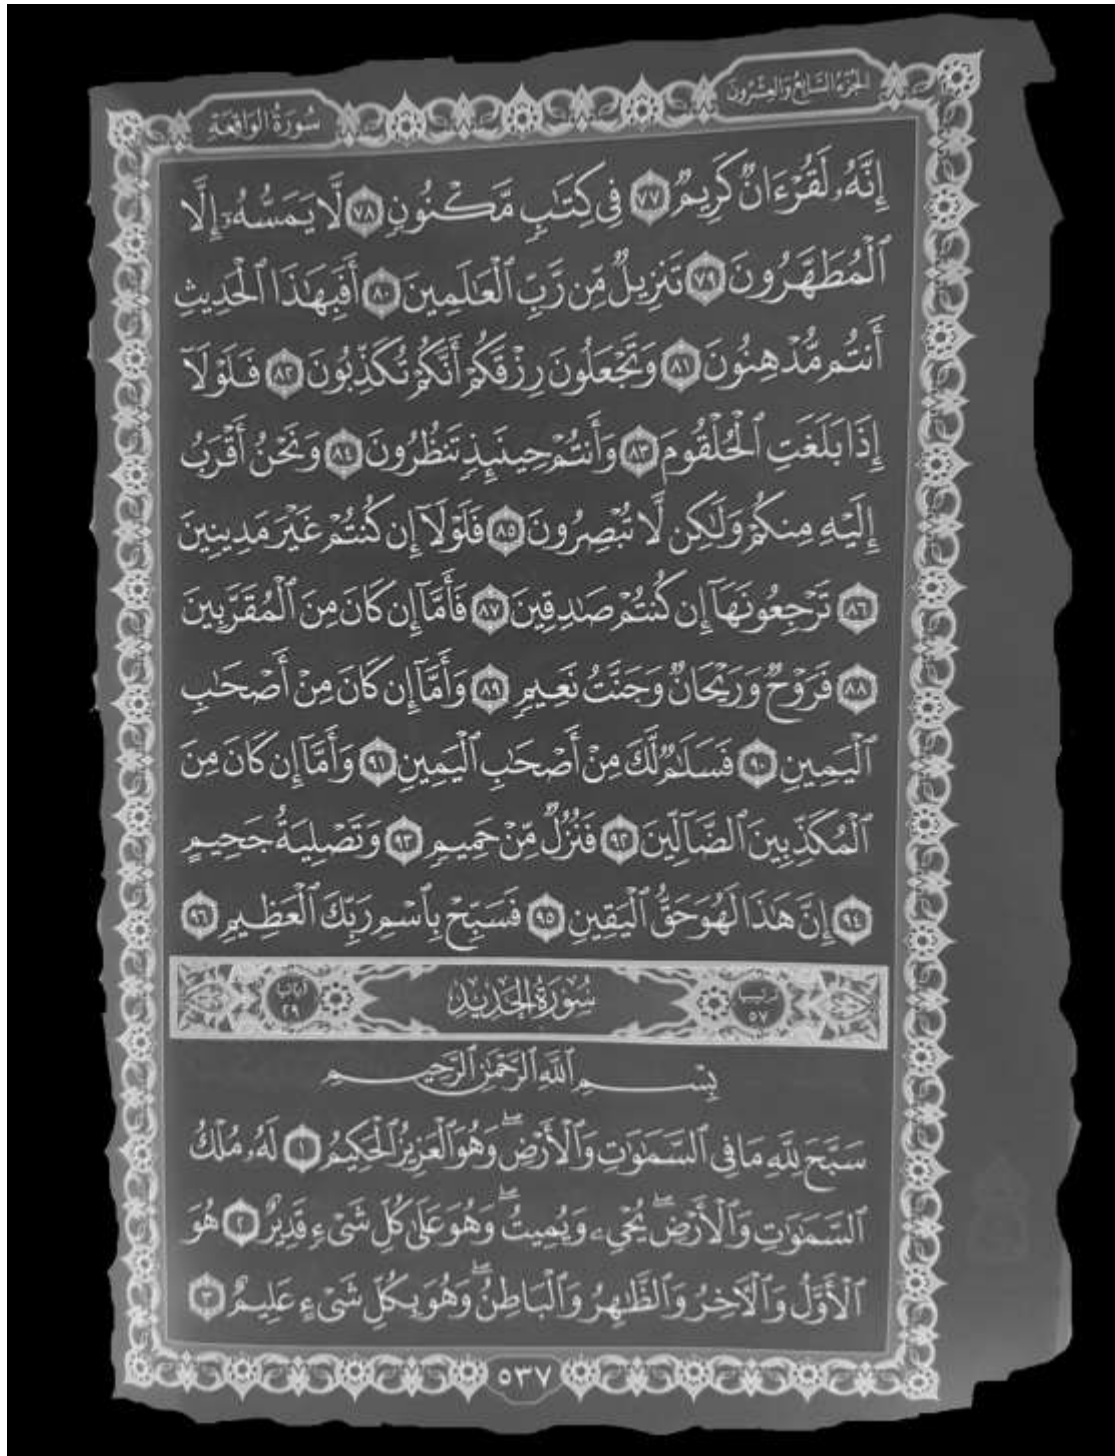 الجزء السابع والعشرون
سورة الواقعة
إِنَّهُۥ لَقُرْءَانٌ كَرِيمٌ ٧٧ فِى كِتَٰبٍ مَّكْنُونٍ ٧٨ لَّا يَمَسُّهُۥٓ إِلَّا
ٱلْمُطَهَّرُونَ ٧٩ تَنزِيلٌ مِّن رَّبِّ ٱلْعَٰلَمِينَ ٨٠ أَفَبِهَٰذَا ٱلْحَدِيثِ
أَنتُم مُّدْهِنُونَ ٨١ وَتَجْعَلُونَ رِزْقَكُمْ أَنَّكُمْ تُكَذِّبُونَ ٨٢ فَلَوْلَآ
إِذَا بَلَغَتِ ٱلْحُلْقُومَ ٨٣ وَأَنتُمْ حِينَئِذٍ تَنظُرُونَ ٨٤ وَنَحْنُ أَقْرَبُ
إِلَيْهِ مِنكُمْ وَلَٰكِن لَّا تُبْصِرُونَ ٨٥ فَلَوْلَآ إِن كُنتُمْ غَيْرَ مَدِينِينَ
٨٦ تَرْجِعُونَهَآ إِن كُنتُمْ صَٰدِقِينَ ٨٧ فَأَمَّآ إِن كَانَ مِنَ ٱلْمُقَرَّبِينَ
٨٨ فَرَوْحٌ وَرَيْحَانٌ وَجَنَّتُ نَعِيمٍ ٨٩ وَأَمَّآ إِن كَانَ مِنْ أَصْحَٰبِ
ٱلْيَمِينِ ٩٠ فَسَلَٰمٌ لَّكَ مِنْ أَصْحَٰبِ ٱلْيَمِينِ ٩١ وَأَمَّآ إِن كَانَ مِنَ
ٱلْمُكَذِّبِينَ ٱلضَّآلِّينَ ٩٢ فَنُزُلٌ مِّنْ حَمِيمٍ ٩٣ وَتَصْلِيَةُ جَحِيمٍ
٩٤ إِنَّ هَٰذَا لَهُوَ حَقُّ ٱلْيَقِينِ ٩٥ فَسَبِّحْ بِٱسْمِ رَبِّكَ ٱلْعَظِيمِ ٩٦
ترتيبها ٥٧ سورة الحديد آياتها ٢٩
بِسْمِ ٱللَّهِ ٱلرَّحْمَٰنِ ٱلرَّحِيمِ
سَبَّحَ لِلَّهِ مَا فِى ٱلسَّمَٰوَٰتِ وَٱلْأَرْضِۖ وَهُوَ ٱلْعَزِيزُ ٱلْحَكِيمُ ١ لَهُۥ مُلْكُ
ٱلسَّمَٰوَٰتِ وَٱلْأَرْضِۖ يُحْىِۦ وَيُمِيتُۖ وَهُوَ عَلَىٰ كُلِّ شَىْءٍ قَدِيرٌ ٢ هُوَ
ٱلْأَوَّلُ وَٱلْءَاخِرُ وَٱلظَّٰهِرُ وَٱلْبَاطِنُۖ وَهُوَ بِكُلِّ شَىْءٍ عَلِيمٌ ٣
٥٣٧